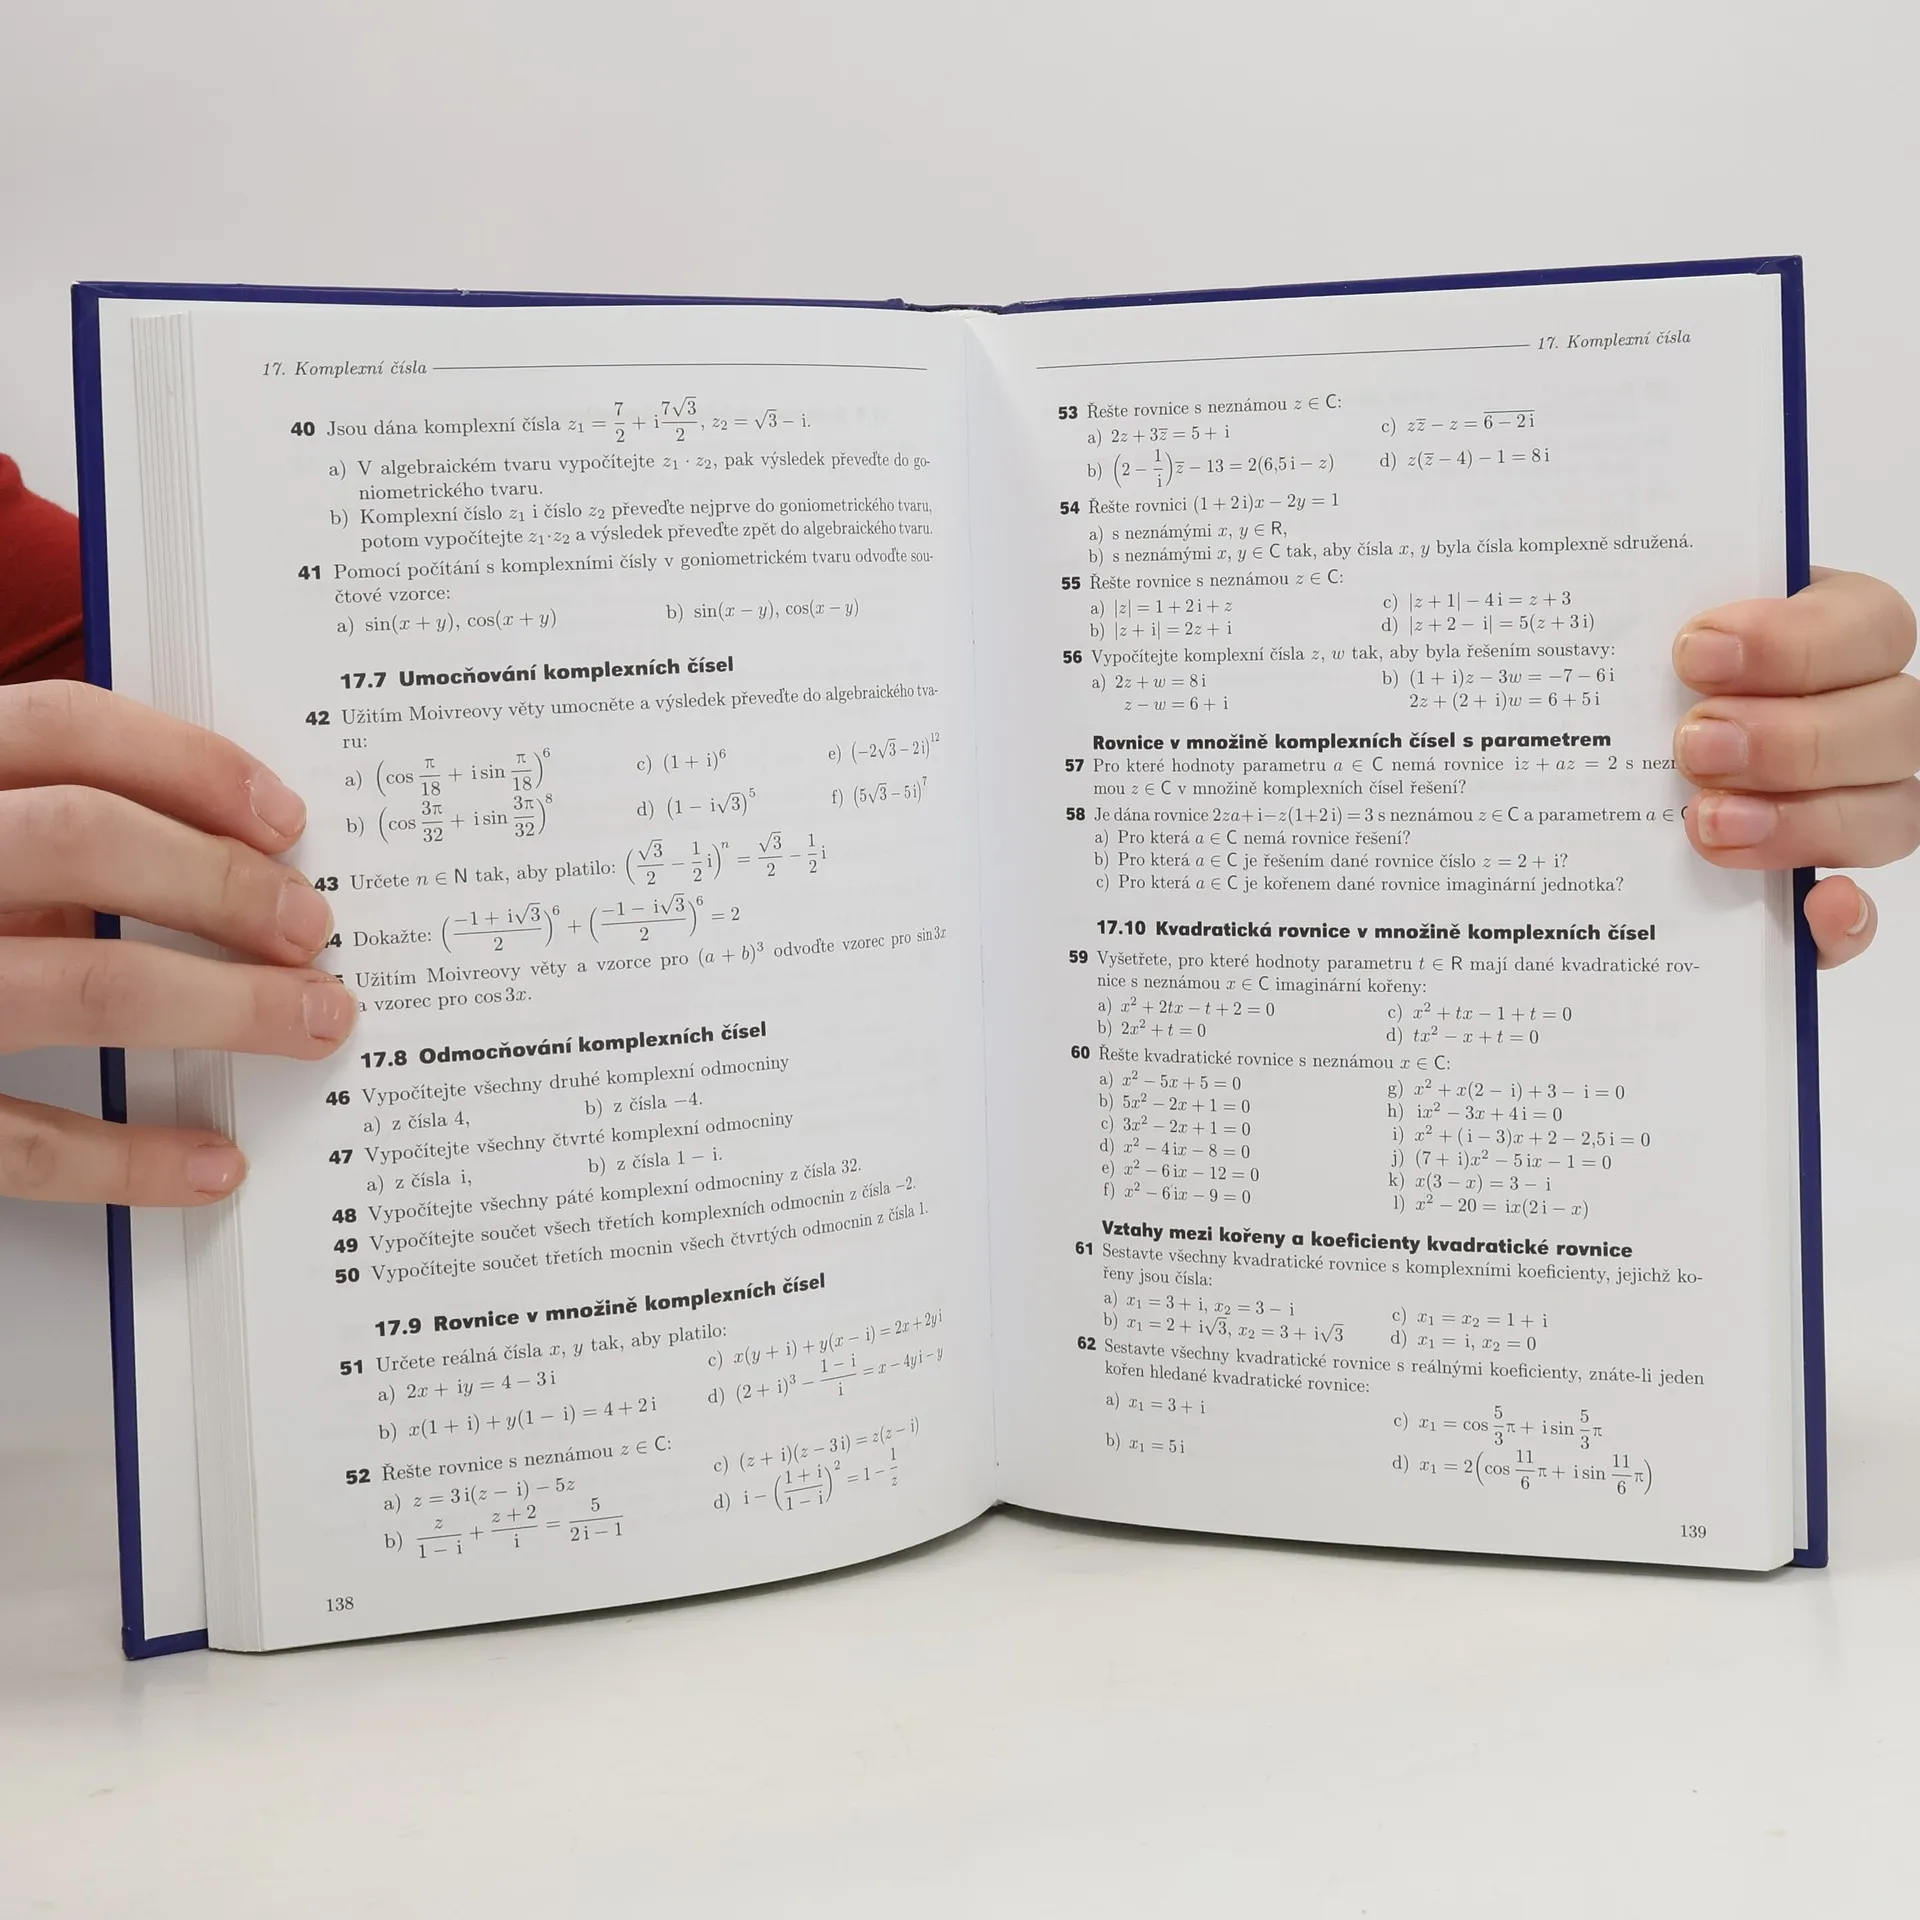 17. Komplexní čísla
40 Jsou dána komplexní čísla z₁ = 7/2 + i 7√3/2, z₂ = √3 − i.
a) V algebraickém tvaru vypočítejte z₁ · z₂, pak výsledek převeďte do go-
niometrického tvaru.
b) Komplexní číslo z₁ i číslo z₂ převeďte nejprve do goniometrického tvaru,
potom vypočítejte z₁·z₂ a výsledek převeďte zpět do algebraického tvaru.
41 Pomocí počítání s komplexními čísly v goniometrickém tvaru odvoďte sou-
čtové vzorce:
a) sin(x + y), cos(x + y) b) sin(x − y), cos(x − y)
17.7 Umocňování komplexních čísel
42 Užitím Moivreovy věty umocněte a výsledek převeďte do algebraického tva-
ru:
a) (cos π/18 + i sin π/18)⁶ c) (1 + i)⁶ e) (−2√3 − 2i)¹²
b) (cos 3π/32 + i sin 3π/32)⁸ d) (1 − i√3)⁵ f) (5√3 − 5i)⁷
43 Určete n ∈ N tak, aby platilo: (√3/2 − 1/2 i)ⁿ = √3/2 − 1/2 i
4 Dokažte: ((−1 + i√3)/2)⁶ + ((−1 − i√3)/2)⁶ = 2
Užitím Moivreovy věty a vzorce pro (a + b)³ odvoďte vzorec pro sin 3x
a vzorec pro cos 3x.
17.8 Odmocňování komplexních čísel
46 Vypočítejte všechny druhé komplexní odmocniny
a) z čísla 4, b) z čísla −4.
47 Vypočítejte všechny čtvrté komplexní odmocniny
a) z čísla i, b) z čísla 1 − i.
48 Vypočítejte všechny páté komplexní odmocniny z čísla 32.
49 Vypočítejte součet všech třetích komplexních odmocnin z čísla −2.
50 Vypočítejte součet třetích mocnin všech čtvrtých odmocnin z čísla 1.
17.9 Rovnice v množině komplexních čísel
51 Určete reálná čísla x, y tak, aby platilo:
a) 2x + iy = 4 − 3i c) x(y + i) + y(x − i) = 2x + 2yi
b) x(1 + i) + y(1 − i) = 4 + 2i d) (2 + i)³ − (1 − i)/i = x − 4yi − y
52 Řešte rovnice s neznámou z ∈ C:
a) z = 3i(z − i) − 5z c) (z + i)(z − 3i) = z(z − i)
b) z/(1 − i) + (z + 2)/i = 5/(2i − 1) d) i − ((1 + i)/(1 − i))² = 1 − 1/z
138
17. Komplexní čísla
53 Řešte rovnice s neznámou z ∈ C:
a) 2z + 3z̅ = 5 + i c) zz̅ − z = 6̅ ̅−̅ ̅2̅i̅
b) (2 − 1/i)z̅ − 13 = 2(6,5i − z) d) z(z̅ − 4) − 1 = 8i
54 Řešte rovnici (1 + 2i)x − 2y = 1
a) s neznámými x, y ∈ R,
b) s neznámými x, y ∈ C tak, aby čísla x, y byla čísla komplexně sdružená.
55 Řešte rovnice s neznámou z ∈ C:
a) |z| = 1 + 2i + z c) |z + 1| − 4i = z + 3
b) |z + i| = 2z + i d) |z + 2 − i| = 5(z + 3i)
56 Vypočítejte komplexní čísla z, w tak, aby byla řešením soustavy:
a) 2z + w = 8i b) (1 + i)z − 3w = −7 − 6i
z − w = 6 + i 2z + (2 + i)w = 6 + 5i
Rovnice v množině komplexních čísel s parametrem
57 Pro které hodnoty parametru a ∈ C nemá rovnice iz + az = 2 s nez
mou z ∈ C v množině komplexních čísel řešení?
58 Je dána rovnice 2za + i − z(1 + 2i) = 3 s neznámou z ∈ C a parametrem a ∈
a) Pro která a ∈ C nemá rovnice řešení?
b) Pro která a ∈ C je řešením dané rovnice číslo z = 2 + i?
c) Pro která a ∈ C je kořenem dané rovnice imaginární jednotka?
17.10 Kvadratická rovnice v množině komplexních čísel
59 Vyšetřete, pro které hodnoty parametru t ∈ R mají dané kvadratické rov-
nice s neznámou x ∈ C imaginární kořeny:
a) x² + 2tx − t + 2 = 0 c) x² + tx − 1 + t = 0
b) 2x² + t = 0 d) tx² − x + t = 0
60 Řešte kvadratické rovnice s neznámou x ∈ C:
a) x² − 5x + 5 = 0 g) x² + x(2 − i) + 3 − i = 0
b) 5x² − 2x + 1 = 0 h) ix² − 3x + 4i = 0
c) 3x² − 2x + 1 = 0 i) x² + (i − 3)x + 2 − 2,5i = 0
d) x² − 4ix − 8 = 0 j) (7 + i)x² − 5ix − 1 = 0
e) x² − 6ix − 12 = 0 k) x(3 − x) = 3 − i
f) x² − 6ix − 9 = 0 l) x² − 20 = ix(2i − x)
Vztahy mezi kořeny a koeficienty kvadratické rovnice
61 Sestavte všechny kvadratické rovnice s komplexními koeficienty, jejichž ko-
řeny jsou čísla:
a) x₁ = 3 + i, x₂ = 3 − i c) x₁ = x₂ = 1 + i
b) x₁ = 2 + i√3, x₂ = 3 + i√3 d) x₁ = i, x₂ = 0
62 Sestavte všechny kvadratické rovnice s reálnými koeficienty, znáte-li jeden
kořen hledané kvadratické rovnice:
a) x₁ = 3 + i c) x₁ = cos 5/3 π + i sin 5/3 π
b) x₁ = 5i d) x₁ = 2(cos 11/6 π + i sin 11/6 π)
139